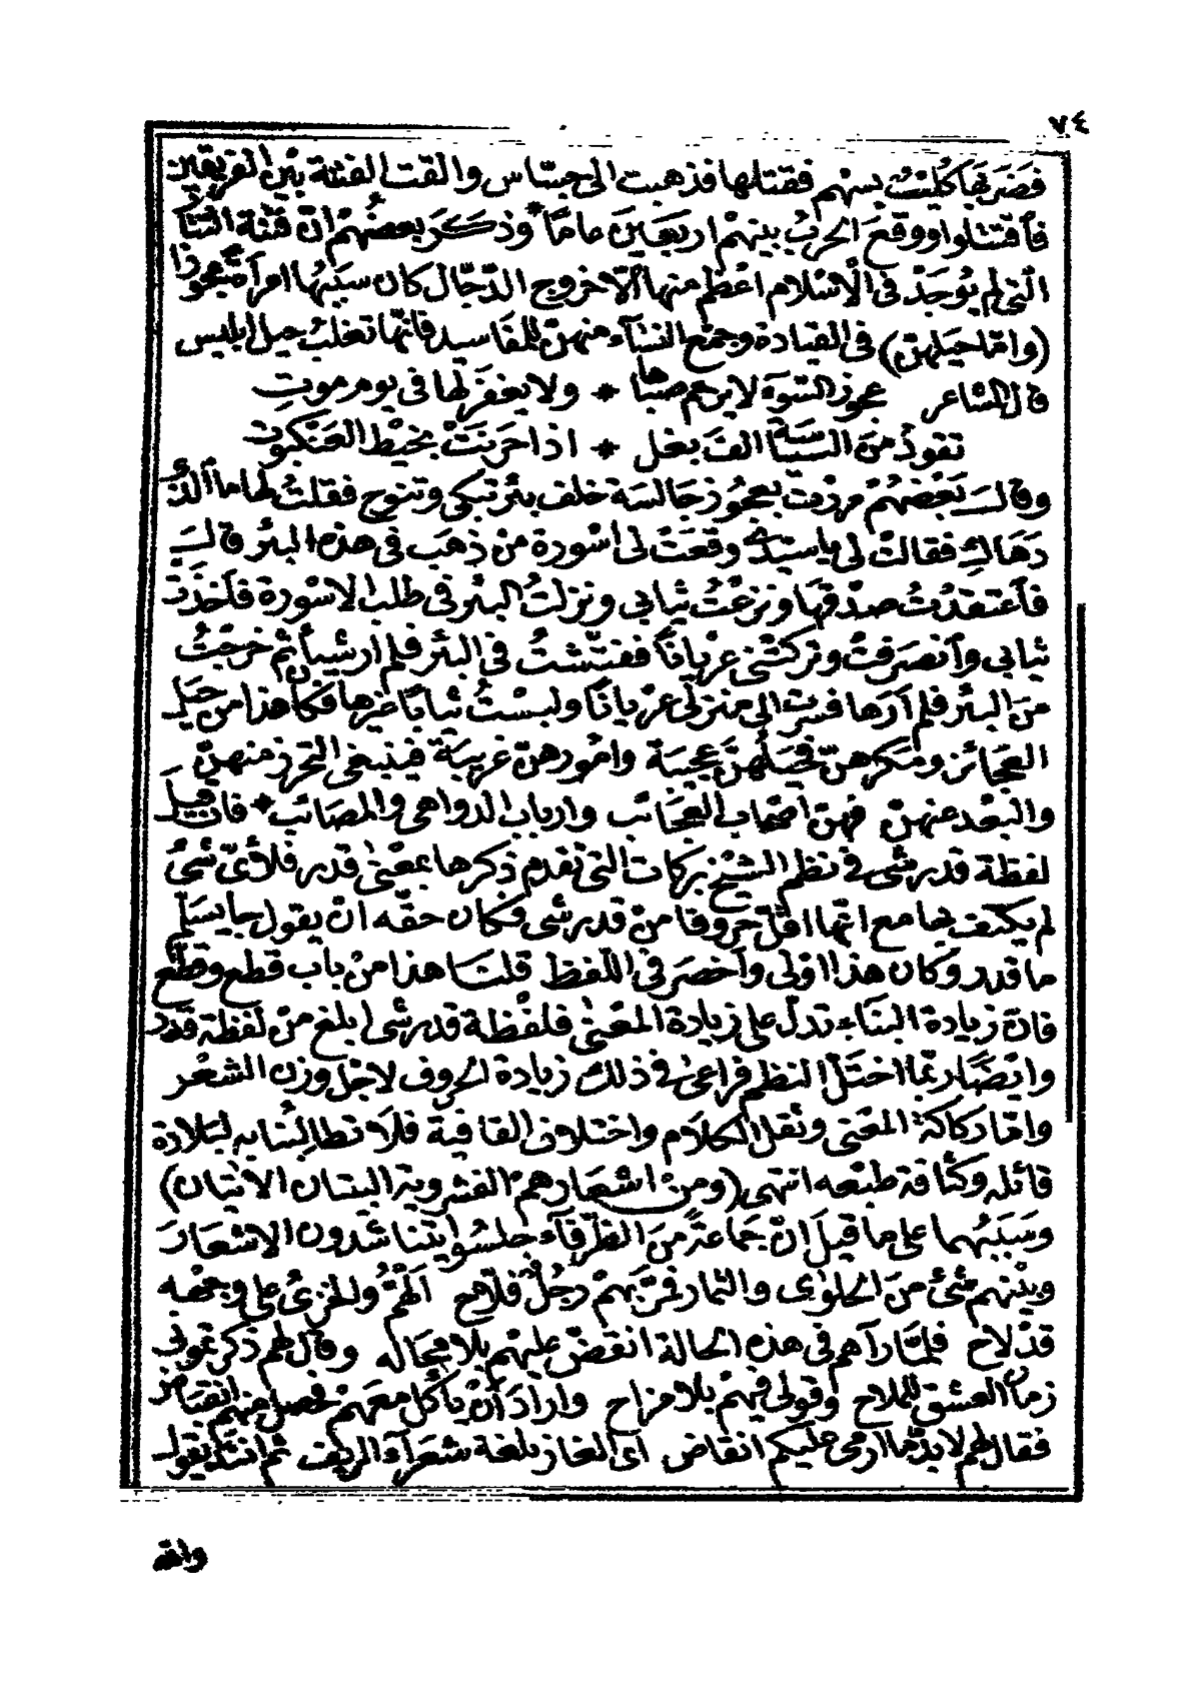 ٧٤
فَضَرَبَهَا كُلَيْبُ بِسَهْم فقتلها فذهبت الى جسّاس والقت الفتنة بَيْن الفريقين
فاقتتلوا ووقعَ الحربُ بينهمْ اربَعينَ عامًا * وذَكَرَ بعضُهُمْ انّ فتنة التتار
التى لم يُوجَدْ فى الْاسْلام اعْظم منها الّا خروج الدّجّال كان سَبَبُهَا امرأة عجوزا
(وامّا حيَلهنّ) فى القيادة وجمْع النسَآء منهنّ للمفاسد فانّها تغلبُ حيل ابليس
قال الشاعر عجوز السّوء لا يرحم صباها * ولا يغفرْ لها فى يوم موتِ
تقودُ منَ السيَاسَة الفَ بغل * اذا حَرَنَتْ بخيْط العَنْكبوت
وقال بَعْضهُمْ مررْت بعجُوز جَالسَة خلف بئر تبكى وتنوح فقلتُ لها ما الذى
دَهَاكِ فقالتْ لى يا سيّدى وقعَتْ لى اسْورة منْ ذهَب فى هذه البئر قال
فاعتقدْتُ صدْقهَا ونزعْتُ ثيابى ونزلتُ البئر فى طلب الاسْورة فاخذَت
ثيابى وانصَرفتْ وتركتْنى عرْيانًا ففتّشتُ فى البئر فلم ار شيأ ثمّ خرجْتُ
منَ البئر فلم ارَها فسرت الى منزلى عرْيانًا ولبسْتُ ثيابًا غيرها فكان هذا من حيل
العجَائز ومَكرهنّ فحيَلهُنّ عجيبَة وامُورهنّ غريبَة فينبغى التحرز منهنّ
والبعْد عنهنّ فهنّ اصحَاب العجَائب وارباب الدواهى والمصَائب * فان قيل
لفظة قدر شى فى نظم الشيْخ بركات التى تقدم ذكرها بمعْنى قدر فلأىّ شئ
لم يكتف بها مع انّها اقلّ حروفا منْ قدر شى فكان حقّه انْ يقول جا يسَلّم
ما قدر وكان هذا اوْلى واخصَر فى اللّفظ قلنَا هذا منْ باب قطع وقطّع
فان زيادة البنَاء تدلّ على زيادة المعْنى فلفْظة قدر شى ابلغ منْ لفظة قدر
وايْضًا ربّما اختَلّ النظم فراعى فى ذلك زيادة الحروف لاجْل وزن الشعْر
وامّا ركاكة المعْنى وثقل الكلَام واختلاف القافية فلَا تطالبْنا به لبَلادة
قائله وكثَافة طبْعه انتهى (ومنْ اشعَارهمْ الفشروية البيتان الاتيان)
وسَبَبهُما على ما قيلَ انّ جَماعَةً منَ الظّرفَآء جلسُوا يتناشدون الاشعَار
وبيْنهم شئ منَ الحلوى والثمار فمرّ بهمْ رجُلٌ فلّاح الهمّ والخزىُ على وجْهه
قدْ لاح فلمّا رآهم فى هذه الحالة انقضّ عليْهم بلا محَاله وقال لهم ذكرتمونى
زمان العشق للملاح وقولى فيهمْ بلا مزاح وارادَ انْ يأكل معَهمْ فحصل منهم انقبَاض
فقال لهم لابدّ ما ارمى عليكم انقاض اى الغاز بلغة شعَرآء الريف ثم انشد يقول
والله